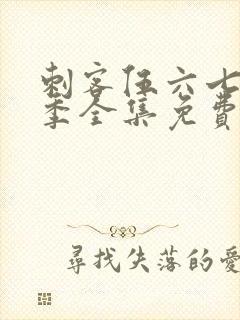 刺客伍六七
季全集免費
尋找失落的愛